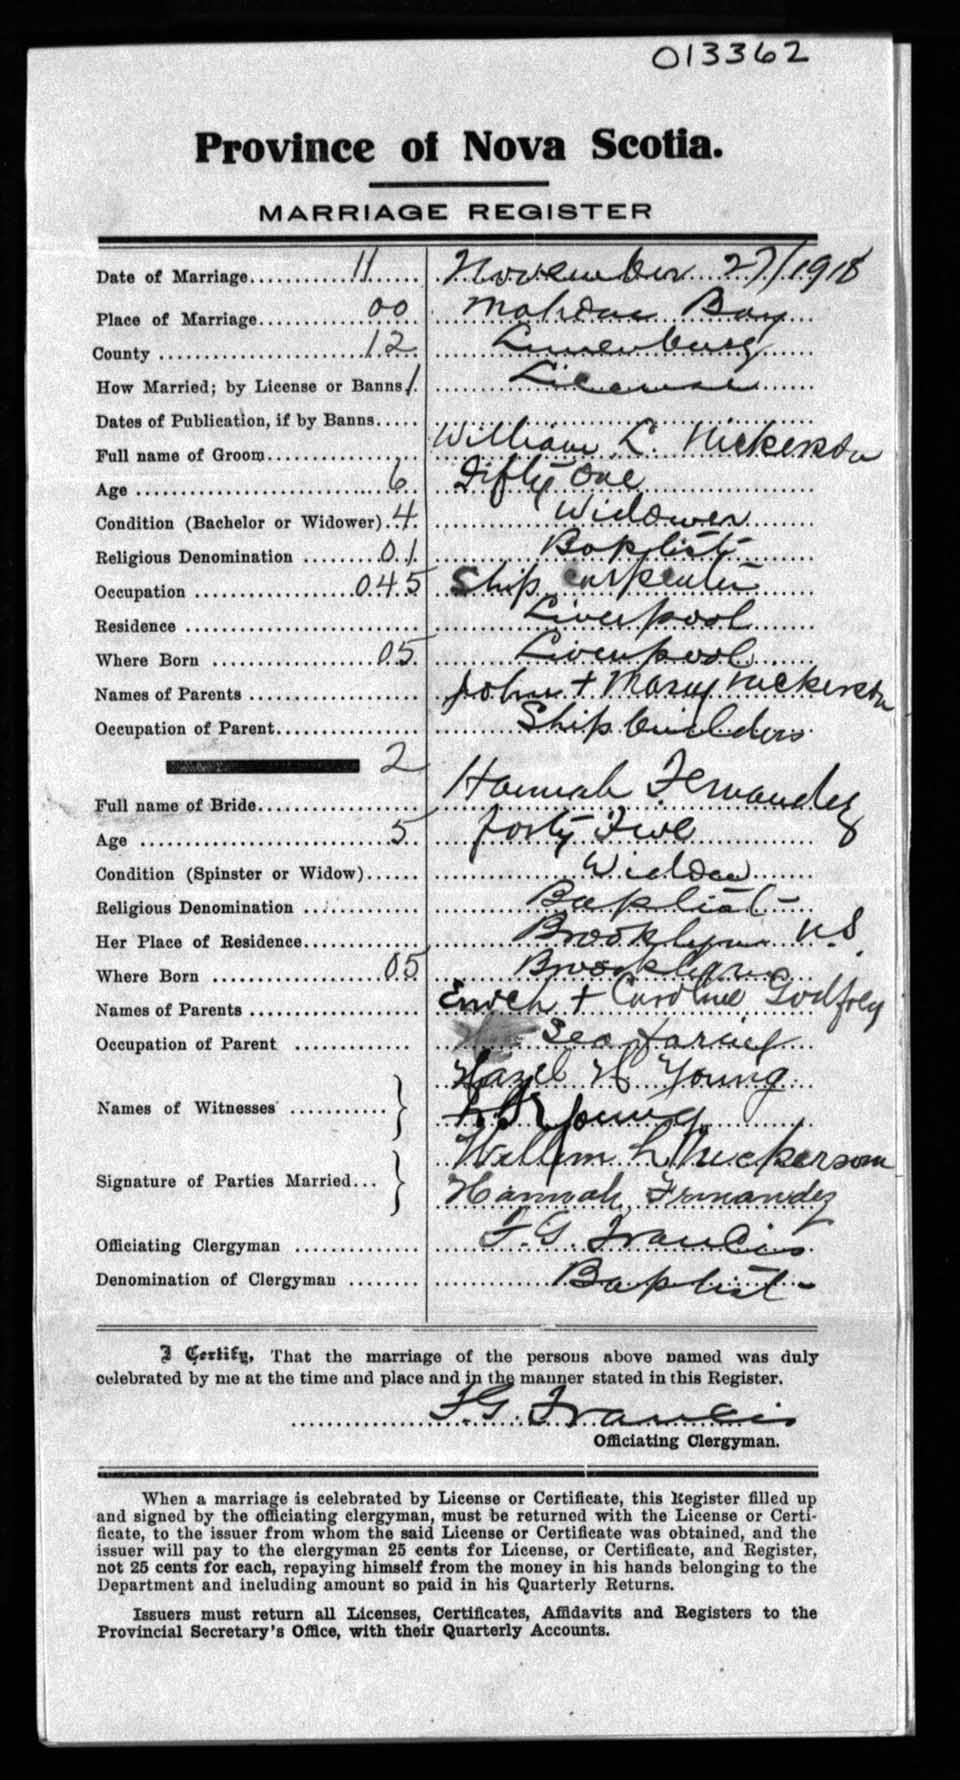 013362
Province of Nova Scotia.
MARRIAGE REGISTER
Date of Marriage 11 November 27/1918
Place of Marriage 00 Mahone Bay
County 12 Lunenburg
How Married; by License or Banns 1 License
Dates of Publication, if by Banns
Full name of Groom William L. Nickerson
Age 6 Fifty One
Condition (Bachelor or Widower) 4 Widower
Religious Denomination 01 Baptist
Occupation 045 Ship carpenter
Residence Liverpool
Where Born 05 Liverpool
Names of Parents John + Mary Nickerson
Occupation of Parent Shipbuilder
2
Full name of Bride Hannah Fernandez
Age 5 forty Five
Condition (Spinster or Widow) Widow
Religious Denomination Baptist
Her Place of Residence Brooklyn N.S.
Where Born 05 Brooklyn
Names of Parents Enoch + Caroline Godfrey
Occupation of Parent Sea faring
Hazel H Young
Names of Witnesses Young
William L Nickerson
Signature of Parties Married Hannah Fernandez
Officiating Clergyman F. G. Francis
Denomination of Clergyman Baptist
I Certify, That the marriage of the persons above named was duly
celebrated by me at the time and place and in the manner stated in this Register.
F. G. Francis
Officiating Clergyman.
When a marriage is celebrated by License or Certificate, this Register filled up
and signed by the officiating clergyman, must be returned with the License or Certi-
ficate, to the issuer from whom the said License or Certificate was obtained, and the
issuer will pay to the clergyman 25 cents for License, or Certificate, and Register,
not 25 cents for each, repaying himself from the money in his hands belonging to the
Department and including amount so paid in his Quarterly Returns.
Issuers must return all Licenses, Certificates, Affidavits and Registers to the
Provincial Secretary's Office, with their Quarterly Accounts.